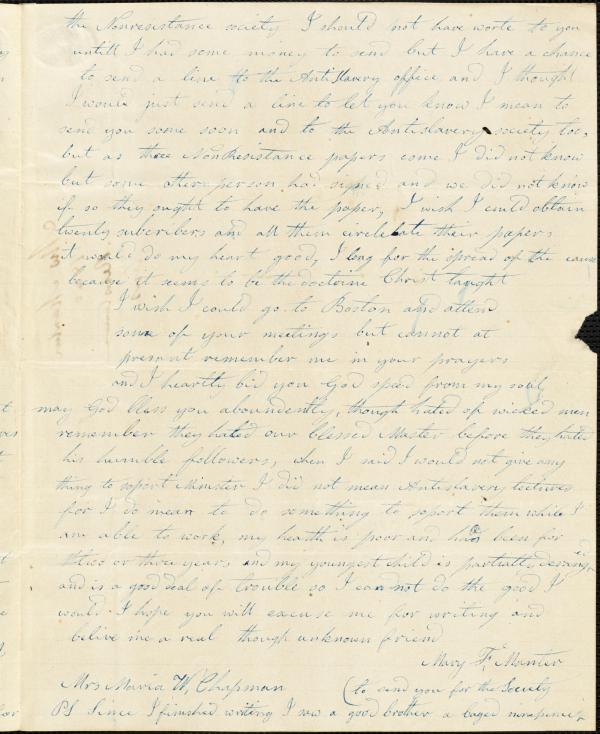 the Nonresistance society I should not have worte to you
untill I had some money to send but I have a chance
to send a line tto the Anti Slavery office and I thought
I would just send a line to let you know I mean to
send you some soon and to the Antislavery society too,
but as three NonResistance papers come I did not know
but some other person had signed and we did not know
if so they ought to have the paper, I wish I could obtain
twenty subcribers and all them circlelate their papers
it would do my heart good, I long for the spread of the cause
because it seems to be the doctorine Christ taught
I wish I could go to Boston and attend
some of your meetings but cannot at
present remember me in your prayers
and I heartly bid you God speed from my soul
may God bless you aboundently, though hated of wicked men
remember they hated our blessed Master before they hated
his humble followers, when I said I would not give any
thing to soport Minister I did not mean Antislavery lectures
for I do mean to do something to soport them while I
am able to work, my health is poor and has been for
two or three years and my youngest child is partially deranged
and is a good deal of trouble so I can not do the good I
would I hope you will excuse me for writing and
belive me a real though unknown friend
Mary F. Manter
Mrs Maria W, Chapman (to send you for the Society
PS Since I finished writing I saw a good brother a